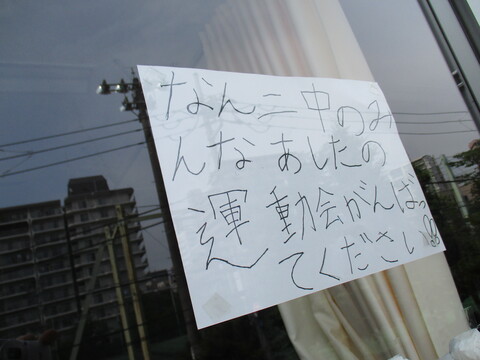 なん二中のみ
んなあしたの
運動会がんばっ
てください!!